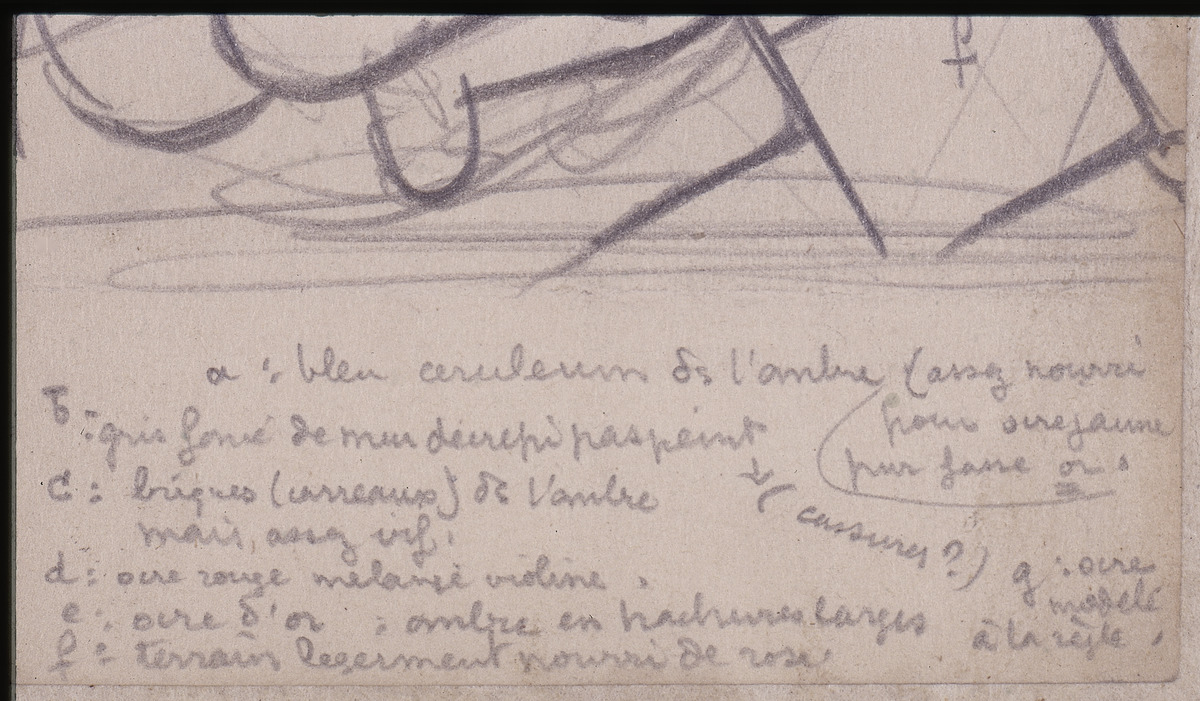 f
a : bleu ceruleum ds l'ombre (assez nourri
pour ocre jaune
pur fasse or.
b : gris foncé de mur décrépi pas peint
(cassures ?)
c : briques (carreaux) ds l'ombre
mais assez vif.
d : ocre rouge mélangé violine.
e : ocre d'or : ombre en hachures larges
f : terrain legerment nourri de rose.
g : ocre
modelé
à la règle.